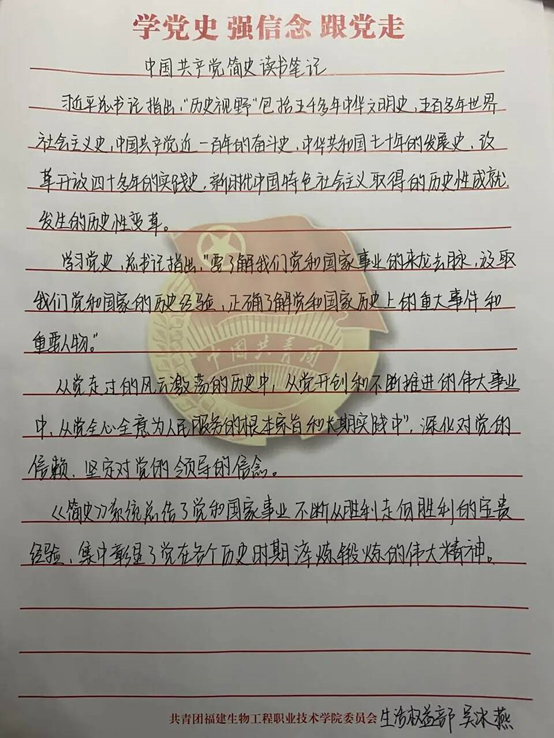 学党史 强信念 跟党走
中国共产党简史读书笔记
习近平总书记指出,"历史视野"包括五千多年中华文明史,五百多年世界
社会主义史,中国共产党近一百年的奋斗史,中华共和国七十年的发展史,改
革开放四十多年的实践史,新时代中国特色社会主义取得的历史性成就
发生的历史性变革。
学习党史,总书记指出,"要了解我们党和国家事业的来龙去脉,汲取
我们党和国家的历史经验,正确了解党和国家历史上的重大事件和
重要人物。"
中国共青团
从党走过的风云激荡的历史中,从党开创和不断推进的伟大事业
中,从党全心全意为人民服务的根本宗旨和长期实践中",深化对党的
信赖、坚定对党的领导的信念。
《简史》系统总结了党和国家事业不断从胜利走向胜利的宝贵
经验,集中彰显了党在各个历史时期淬炼锻炼的伟大精神。
共青团福建生物工程职业技术学院委员会 生活权益部 吴冰燕